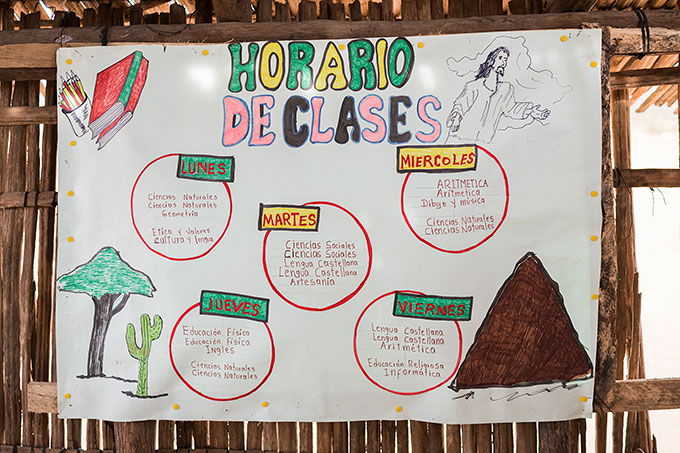 HORARIO
DE CLASES
LUNES
Ciencias Naturales
Ciencias Naturales
Geometria
Etica y Valores
Cultura y lengua
MARTES
Ciencias Sociales
Ciencias Sociales
Lengua Castellana
Lengua Castellana
Artesanía
MIERCOLES
ARITMETICA
Aritmetica
Dibujo y música
Ciencias Naturales
Ciencias Naturales
JUEVES
Educación Física
Educación Física
Ingles
Ciencias Naturales
Ciencias Naturales
VIERNES
Lengua Castellana
Lengua Castellana
Aritmética
Educación Religiosa
Informática